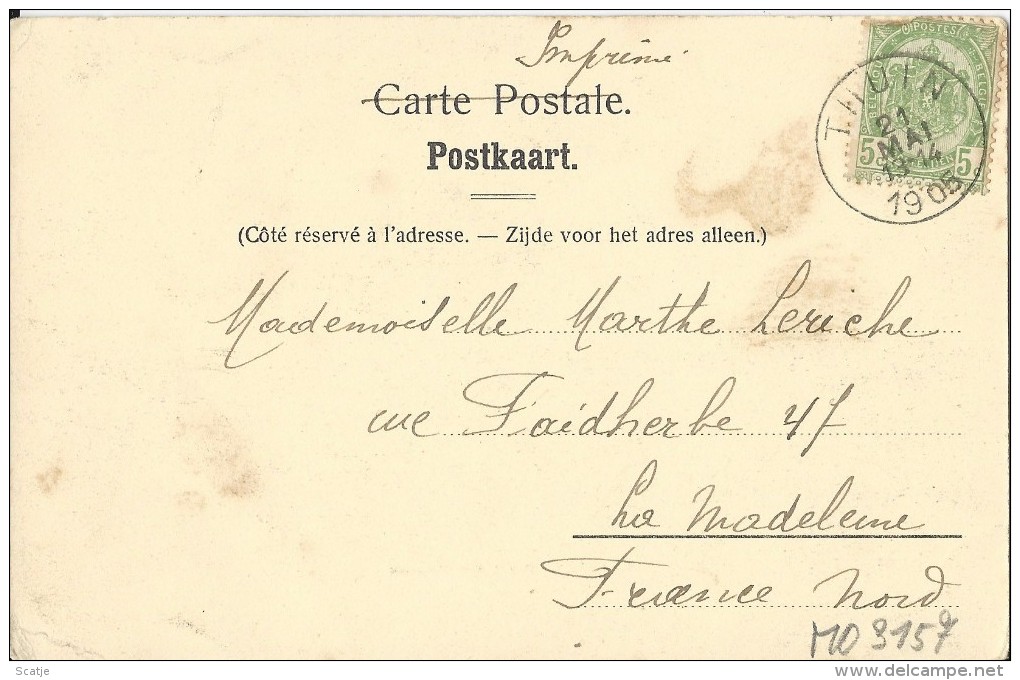 Imprimé
Carte Postale.
Postkaart.
(Côté réservé à l'adresse. — Zijde voor het adres alleen.)
POSTES
5 5
THUIN
21
MAI
13-14
1905
Mademoiselle Marthe Leriche
rue Faidherbe 47
La Madeleine
France Nord
MO 3157
Scatje
www.delcampe.net